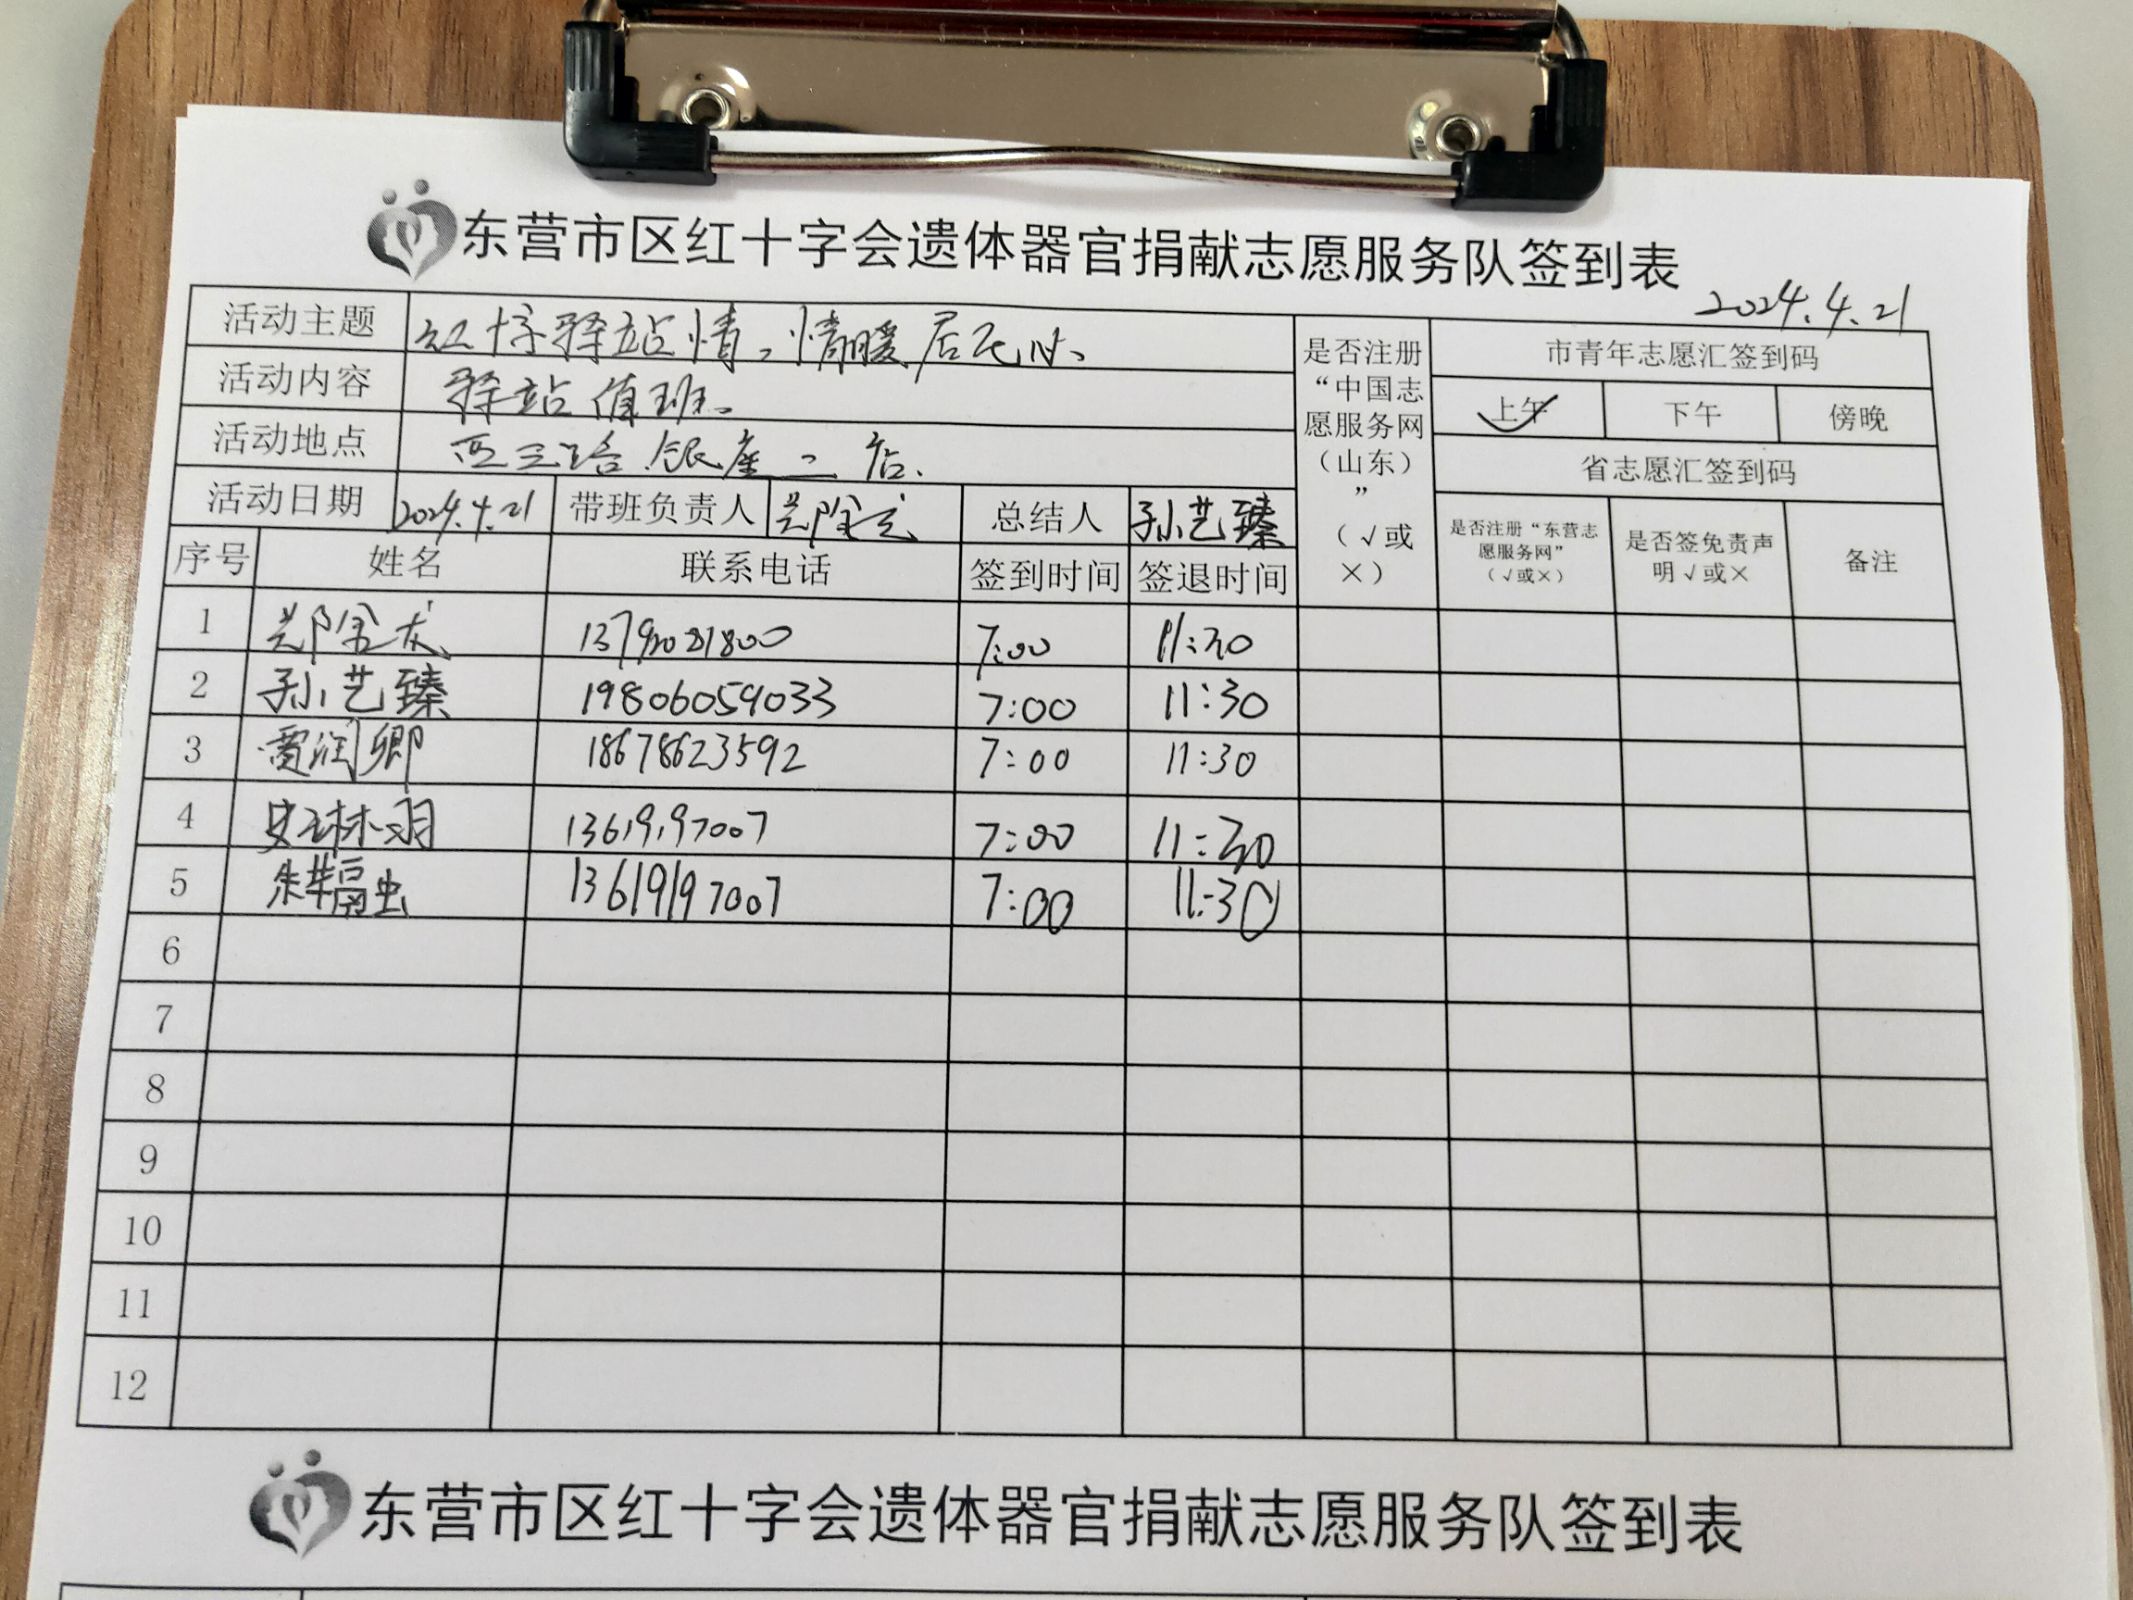 东营市区红十字会遗体器官捐献志愿服务队签到表
2024.4.21
活动主题 红十字驿站情，情暖居民心、
活动内容 驿站值班。
活动地点 西三路银座二店.
活动日期 2024.4.21 带班负责人 总结人 孙艺臻
是否注册“中国志愿服务网（山东）”（√或×）
市青年志愿汇签到码
上午 下午 傍晚
省志愿汇签到码
是否注册“东营志愿服务网”（√或×） 是否签免责声明√或× 备注
序号 姓名 联系电话 签到时间 签退时间
1 7:00 11:30
2 孙艺臻 19806059033 7:00 11:30
3 贾润卿 18678623592 7:00 11:30
4 史琳羽 13619197007 7:00 11:30
5 朱 13619197007 7:00 11:30
6
7
8
9
10
11
12
东营市区红十字会遗体器官捐献志愿服务队签到表